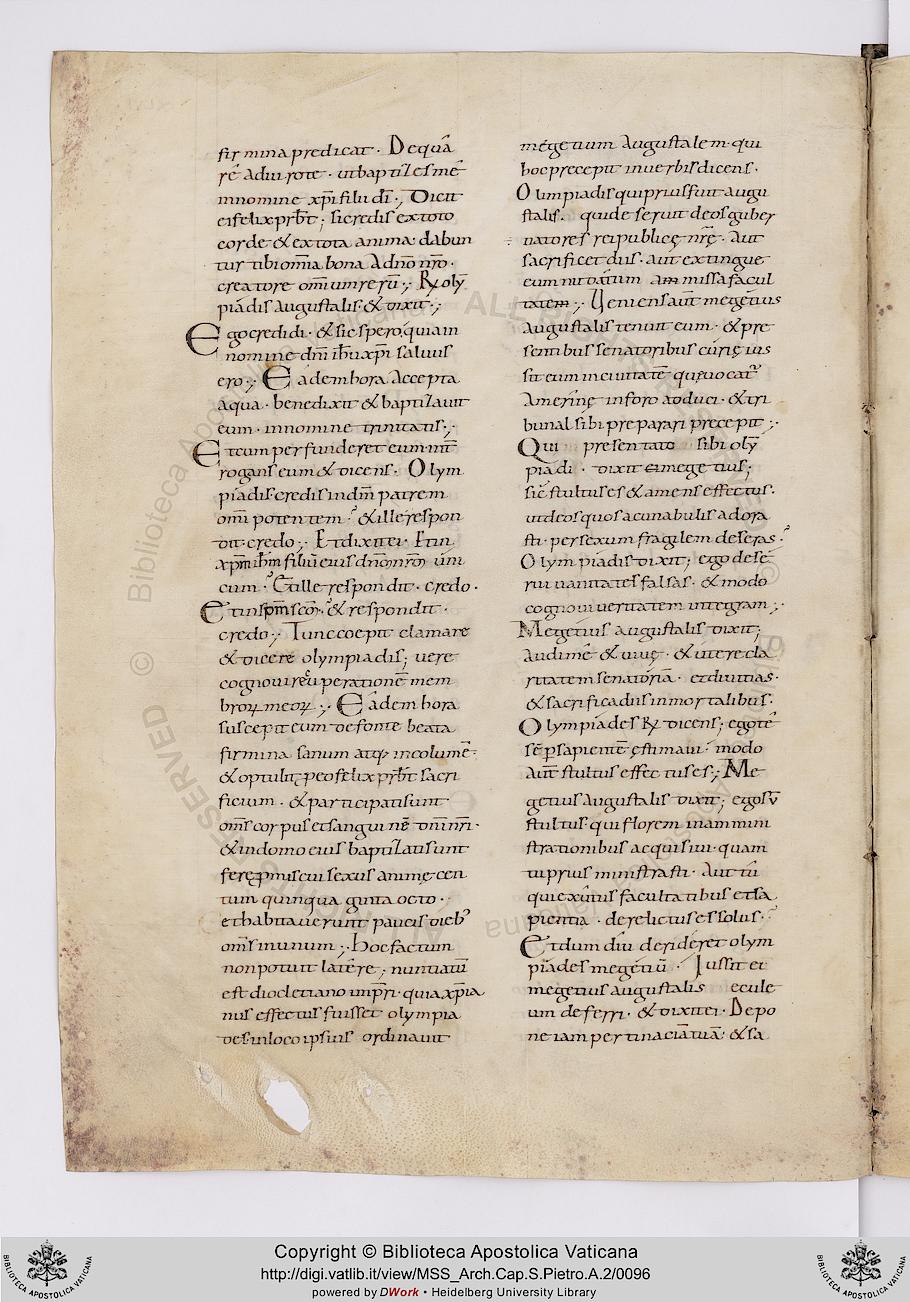 firmina predicat · De qua
re adiurote · ut baptizes me
innomine xp̄i filii dī ·, Dicit
ei felix prb̄t ; si credis ex toto
corde & ex tota anima dabun
tur tibi om̄ia bona Adn̄o nr̄o ·
creatore om̄ium reru ·, R̄ olȳ
piadis augustalis · & dixit ·,
Ego credidi · & sic spero · quia in
nomine dn̄i ih̄u xp̄i saluus
ero ·, Eadem hora Accepta
aqua · benedixit & baptizauit
eum · innomine trinitatis ·,
Et cum perfunderet eum int̄
rogans eum & dicens · Olym
piadis credis in dm̄ patrem
om̄i potentem ? & ille respon
dit · credo ·, Et dixit ei · Et in
xp̄m ih̄m filiū eius dn̄m nr̄m uni
cum ? Et ille respondit · credo ·
Et in sp̄m scm̄ ? & respondit ·
credo ·, Tunc coepit clamare
& dicere olympiadis ; uere
cognoui recuperationē mem
brorum meorum ·, Eadem hora
suscepit eum de fonte beata
firmina sanum atq; incolumē ·
& optulit p eo felix prb̄t sacri
ficium · & participati sunt
om̄s corpus et sanguinē dn̄i nr̄i ·
& in domo eius baptizati sunt
ferę promiscui sexus animę cen
tum quinquaginta octo ·
et habitauerunt paucis dieb;
om̄s in unum ·, Hoc factum
non potuit latere ; nuntiatū
est diocletiano imp̄ri · quia xp̄ia
nus effectus fuisset olympia
des in loco ipsius ordinauit
megetium Augustalem · qui
hoc precepit in uerbis dicens ·
Olimpiadis qui prius fuit augu
stalis · qui deseruit deos guber
natores reipublicę nr̄ę · Aut
sacrificet diis · aut extingue
eum nudatum amissa facul
tatem ·, Ueniens aut̄ megetius
augustalis tenuit eum · & pre
sentibus senatoribus curię ius
sit eum in ciuitatē quę uocatur
Amerinę in foro adduci · & tri
bunal sibi preparari precepit ·,
Qui presentato sibi olȳ
piadi · dixit megetius ;
sic stultus es & amens effectus ·
ut deos quos a cunabulis adora
sti · per sexum fragilem deseras ?
Olympiadis dixit ; ego dese
rui uanitates falsas · & modo
cognoui ueritatem integram ·,
Megetius augustalis dixit ;
Audi me & uiue · & utere cla
ritatem senatoria · et diuitias ·
& sacrifica diis inmortalibus ·
Olympiades R̄ dicens ; ego te
se p sapientē ęstimaui · modo
aut̄ stultus effectus es ·, Me
getius augustalis dixit ; ego sū
stultus · qui florem in ammini
strationibus acquisiui · quam
tu prius ministrasti · Aut tu
qui exutus facultatibus et sa
pientia · derelictus es solus ?
Et dum diu derideret olym
piades megetiū · Iussit ei
megetius augustalis ecule
um deferri · & dixit ei · Depo
ne iam pertinaciā tuā · & sa
Copyright © Biblioteca Apostolica Vaticana
http://digi.vatlib.it/view/MSS_Arch.Cap.S.Pietro.A.2/0096
powered by DWork • Heidelberg University Library